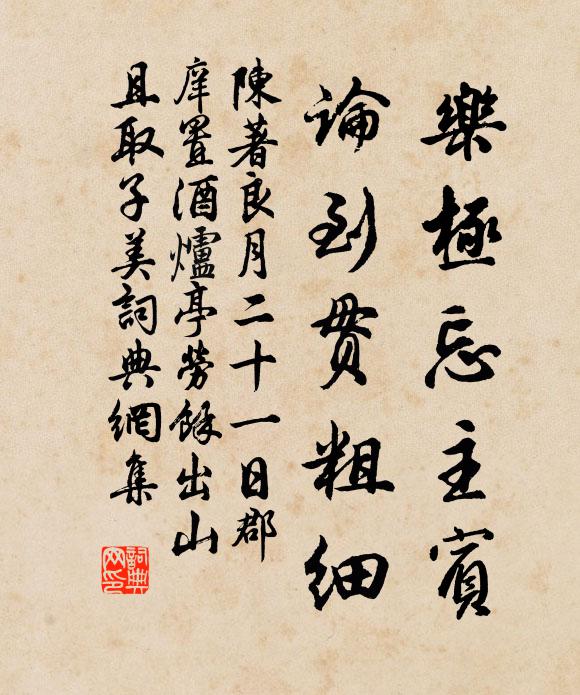 樂極忘主賓
論到贯粗細
陳著良月二十一日郡
庠置酒爐亭勞餘出山
且取子美詞典網集
詞典网印